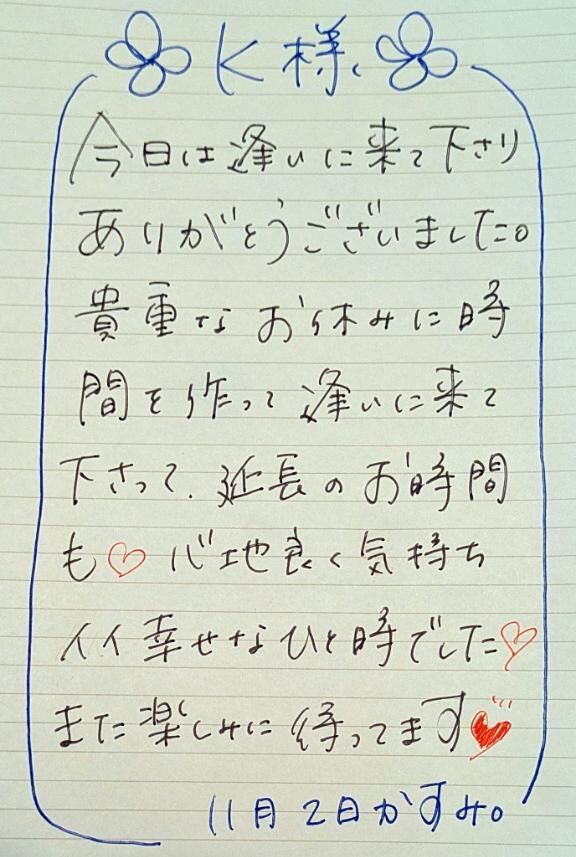 K様、
今日は逢いに来て下さり
ありがとうございました。
貴重なお休みに時
間を作って逢いに来て
下さって、延長のお時間
も♡心地良く気持ち
イイ幸せなひと時でした♡
また楽しみに待ってます♥
11月2日かすみ。